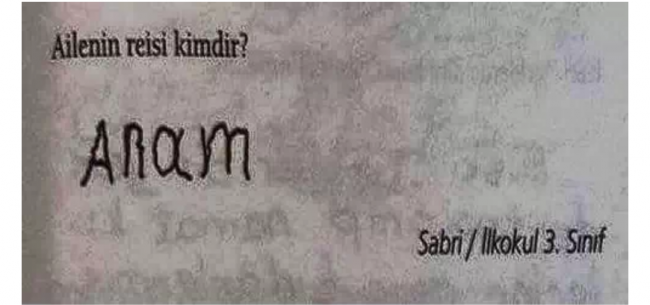 Ailenin reisi kimdir?
Anam
Sabri / İlkokul 3. Sınıf